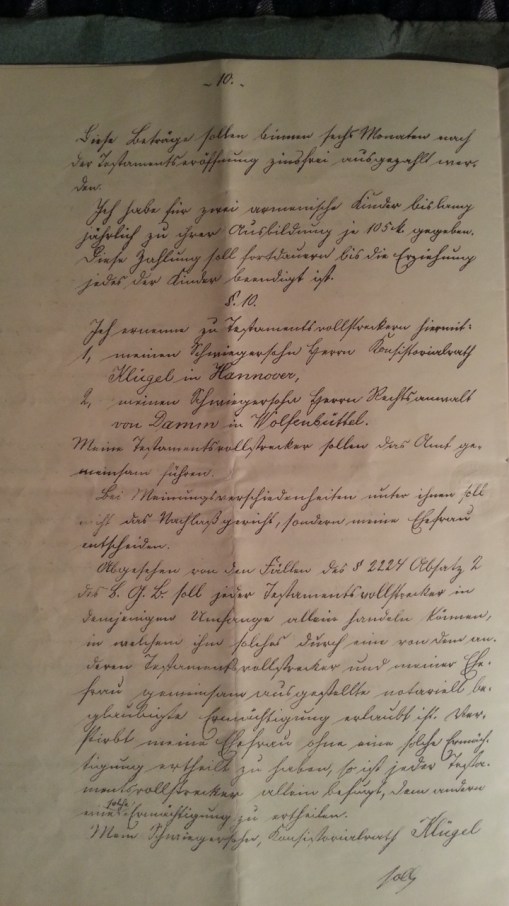 - 10. -
Diese Beträge sollen binnen sechs Monaten nach
der Testamentseröffnung zinsfrei ausgezahlt wer-
den.
Ich habe für zwei armenische Kinder bislang
jährlich zu ihrer Ausbildung je 105 M gegeben.
Diese Zahlung soll fortdauern bis die Erziehung
jedes der Kinder beendigt ist.
§. 10.
Ich ernenne zu Testamentsvollstreckern hiermit:
1, meinen Schwiegersohn Herrn Konsistorialrath
Klügel in Hannover,
2, meinen Schwiegersohn Herrn Rechtsanwalt
von Damm in Wolfenbüttel.
Meine Testamentsvollstrecker sollen das Amt ge-
meinsam führen.
Bei Meinungsverschiedenheiten unter ihnen soll
nicht das Nachlaßgericht, sondern meine Ehefrau
entscheiden.
Abgesehen von den Fällen des § 2224 Absatz 2
des B. G. B. soll jeder Testamentsvollstrecker in
demjenigen Umfange allein handeln können,
in welchem ihm solches durch eine von dem an-
deren Testamentsvollstrecker und meiner Ehe-
frau gemeinsam ausgestellte notariell be-
glaubigte Ermächtigung erlaubt ist. Ver-
stirbt meine Ehefrau ohne eine solche Ermäch-
tigung ertheilt zu haben, so ist jeder Testa-
mentsvollstrecker allein befugt, dem andern
eine solche Ermächtigung zu ertheilen.
Mein Schwiegersohn, Konsistorialrath Klügel
soll